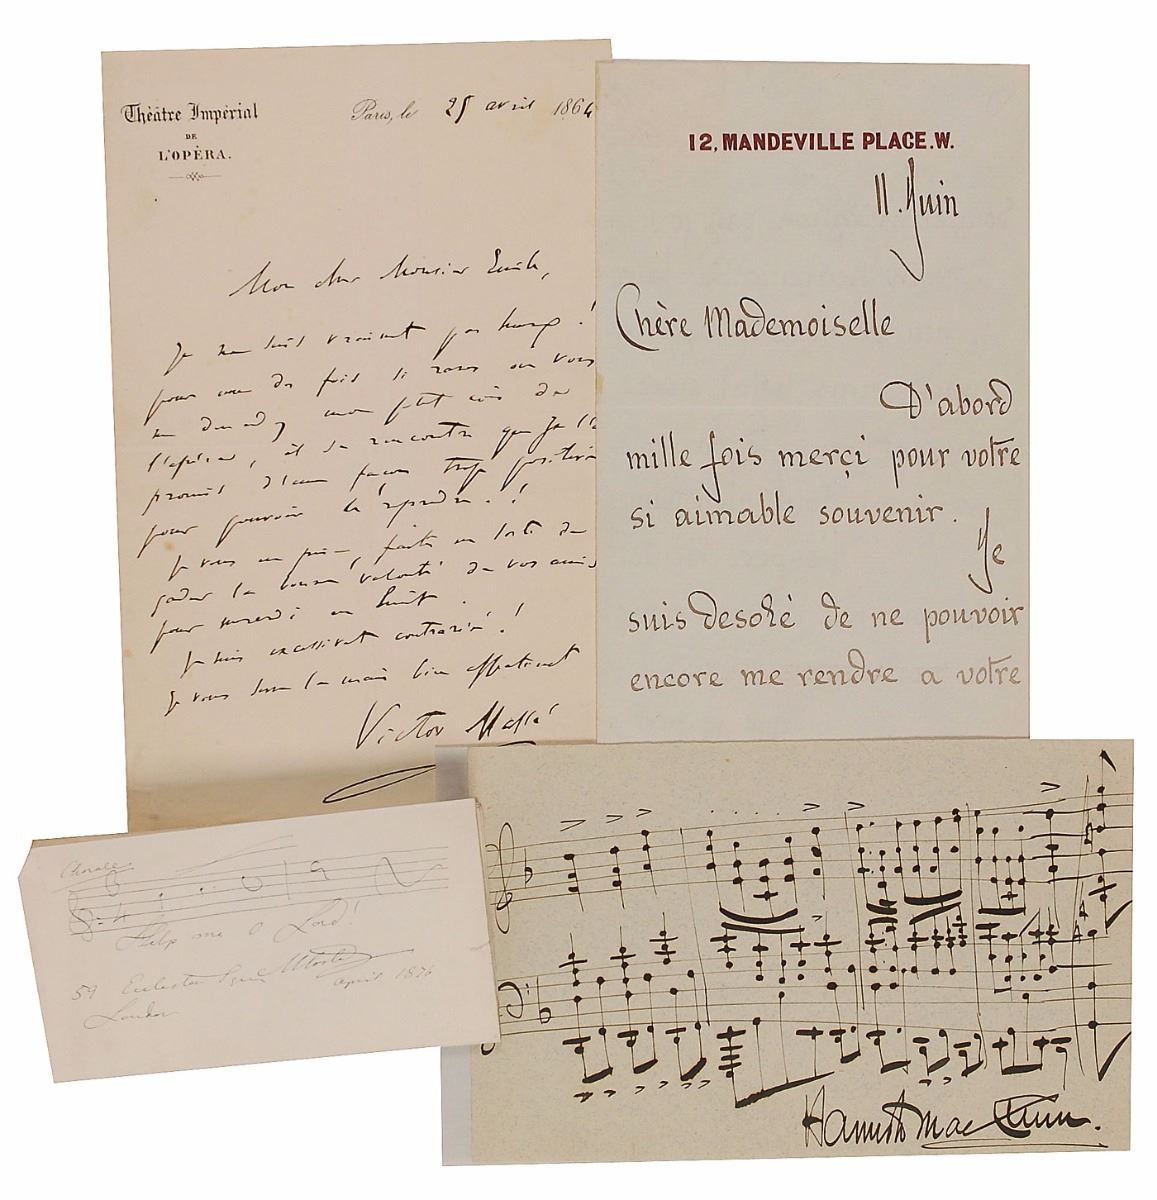 Théâtre Impérial
DE
L'OPÉRA.
Paris, le 25 avril 1864
Mon cher Monsieur Emile,
Je ne suis vraiment pas heureux !
pour une des fois si rares où vous
me demandez mon petit coin de
l'opéra, il se rencontre que je l'ai
promis d'une façon trop positive
pour pouvoir le reprendre !
Je vous en prie, faites en sorte de
garder la bonne volonté de vos amis
pour mercredi en huit.
Je suis excessivement contrarié !
Je vous serre la main bien affectueusement
Victor Massé
12, MANDEVILLE PLACE. W.
11. Juin
Chère Mademoiselle
D'abord
mille fois merçi pour votre
si aimable souvenir.
Je
suis desolé de ne pouvoir
encore me rendre a votre
Chorale
Help me O Lord!
59 Eccleston Square
April 1876
London
Hamish MacCunn.